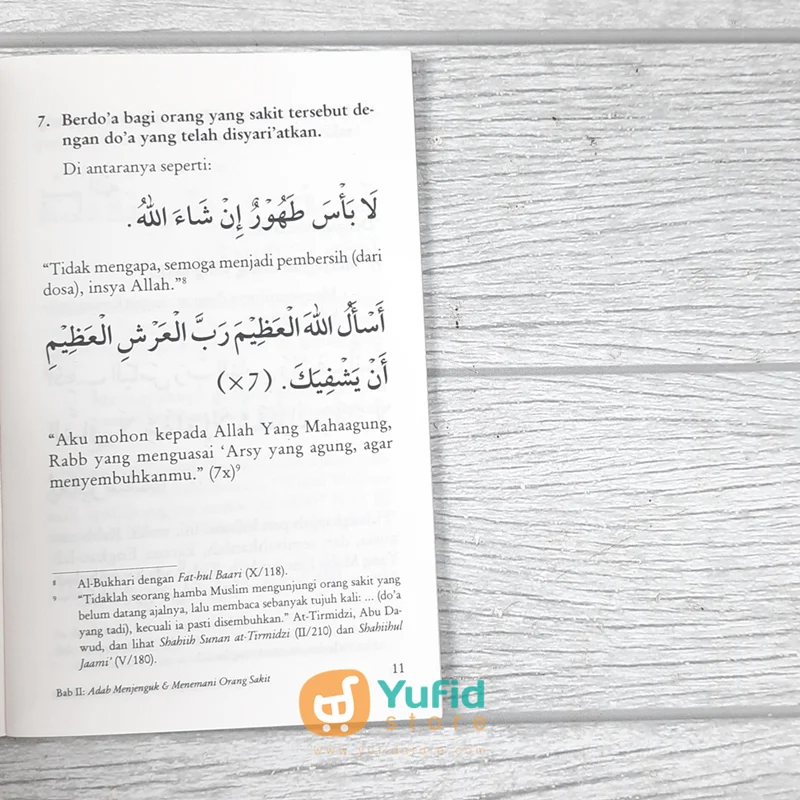 7. Berdo'a bagi orang yang sakit tersebut de-
ngan do'a yang telah disyari'atkan.
Di antaranya seperti:
لَا بَأْسَ طَهُوْرٌ إِنْ شَاءَ اللهُ.
“Tidak mengapa, semoga menjadi pembersih (dari
dosa), insya Allah.”8
أَسْأَلُ اللهَ الْعَظِيْمَ رَبَّ الْعَرْشِ الْعَظِيْمِ
أَنْ يَشْفِيَكَ. (7×)
“Aku mohon kepada Allah Yang Mahaagung,
Rabb yang menguasai ‘Arsy yang agung, agar
menyembuhkanmu.” (7x)9
8 Al-Bukhari dengan Fat-hul Baari (X/118).
9 “Tidaklah seorang hamba Muslim mengunjungi orang sakit yang
belum datang ajalnya, lalu membaca sebanyak tujuh kali: ... (do'a
yang tadi), kecuali ia pasti disembuhkan.” At-Tirmidzi, Abu Da-
wud, dan lihat Shahiih Sunan at-Tirmidzi (II/210) dan Shahiihul
Jaami' (V/180).
11
Bab II: Adab Menjenguk & Menemani Orang Sakit
Yufid
store
www.yufidstore.com